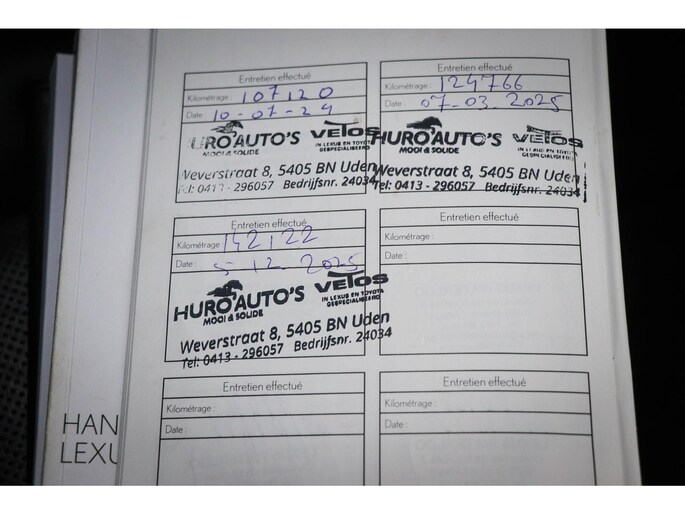 Entretien effectué
Kilométrage : 107120
Date : 10-07-24
URO AUTO'S VETOS
MOOI & SOLIDE IN LEXUS EN TOYOTA
GESPECIALISEERD
Weverstraat 8, 5405 BN Uden
Tel: 0413 - 296057 Bedrijfsnr. 24034
Entretien effectué
Kilométrage : 124766
Date : 07-03.2025
HURO AUTO'S VETOS
MOOI & SOLIDE IN LEXUS EN TOYOTA
GESPECIALISEERD
Weverstraat 8, 5405 BN Uden
Tel: 0413 - 296057 Bedrijfsnr. 24034
Entretien effectué
Kilométrage : 142122
Date : 5-12.2025
HURO AUTO'S VETOS
MOOI & SOLIDE IN LEXUS EN TOYOTA
GESPECIALISEERD
Weverstraat 8, 5405 BN Uden
Tel: 0413 - 296057 Bedrijfsnr. 24034
Entretien effectué
Kilométrage :
Date :
Entretien effectué
Kilométrage :
Date :
Entretien effectué
Kilométrage :
Date :
HAN
LEXU